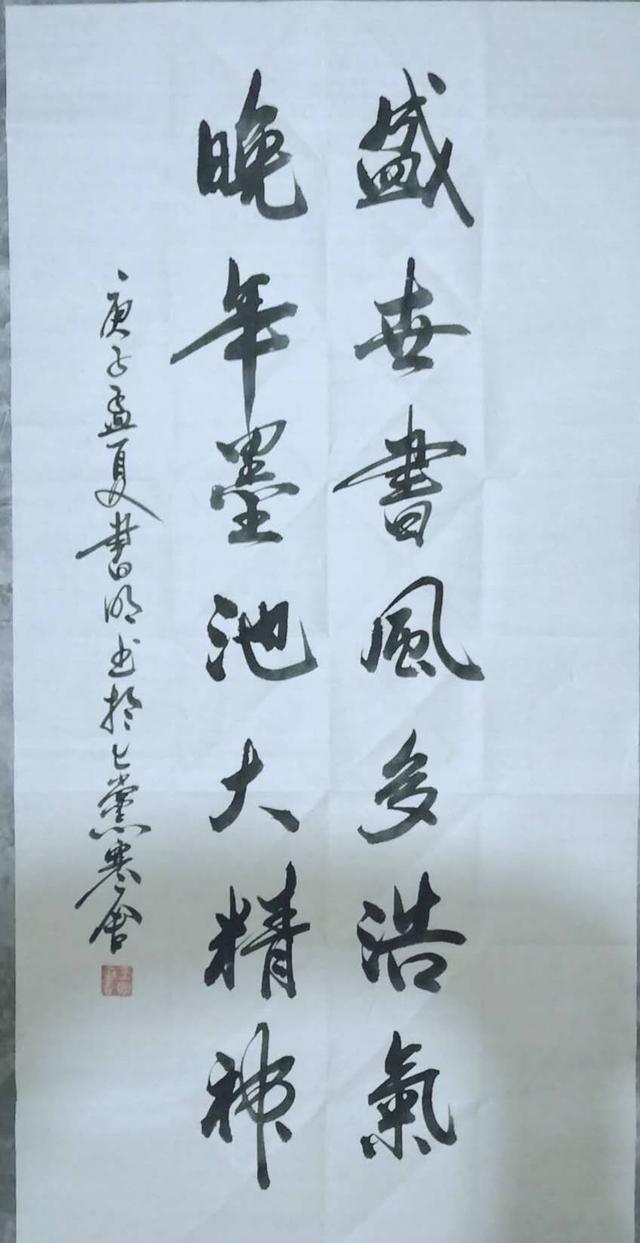 盛世書風多浩氣
晚年墨池大精神
庚子孟夏書明书於上黨寒舍